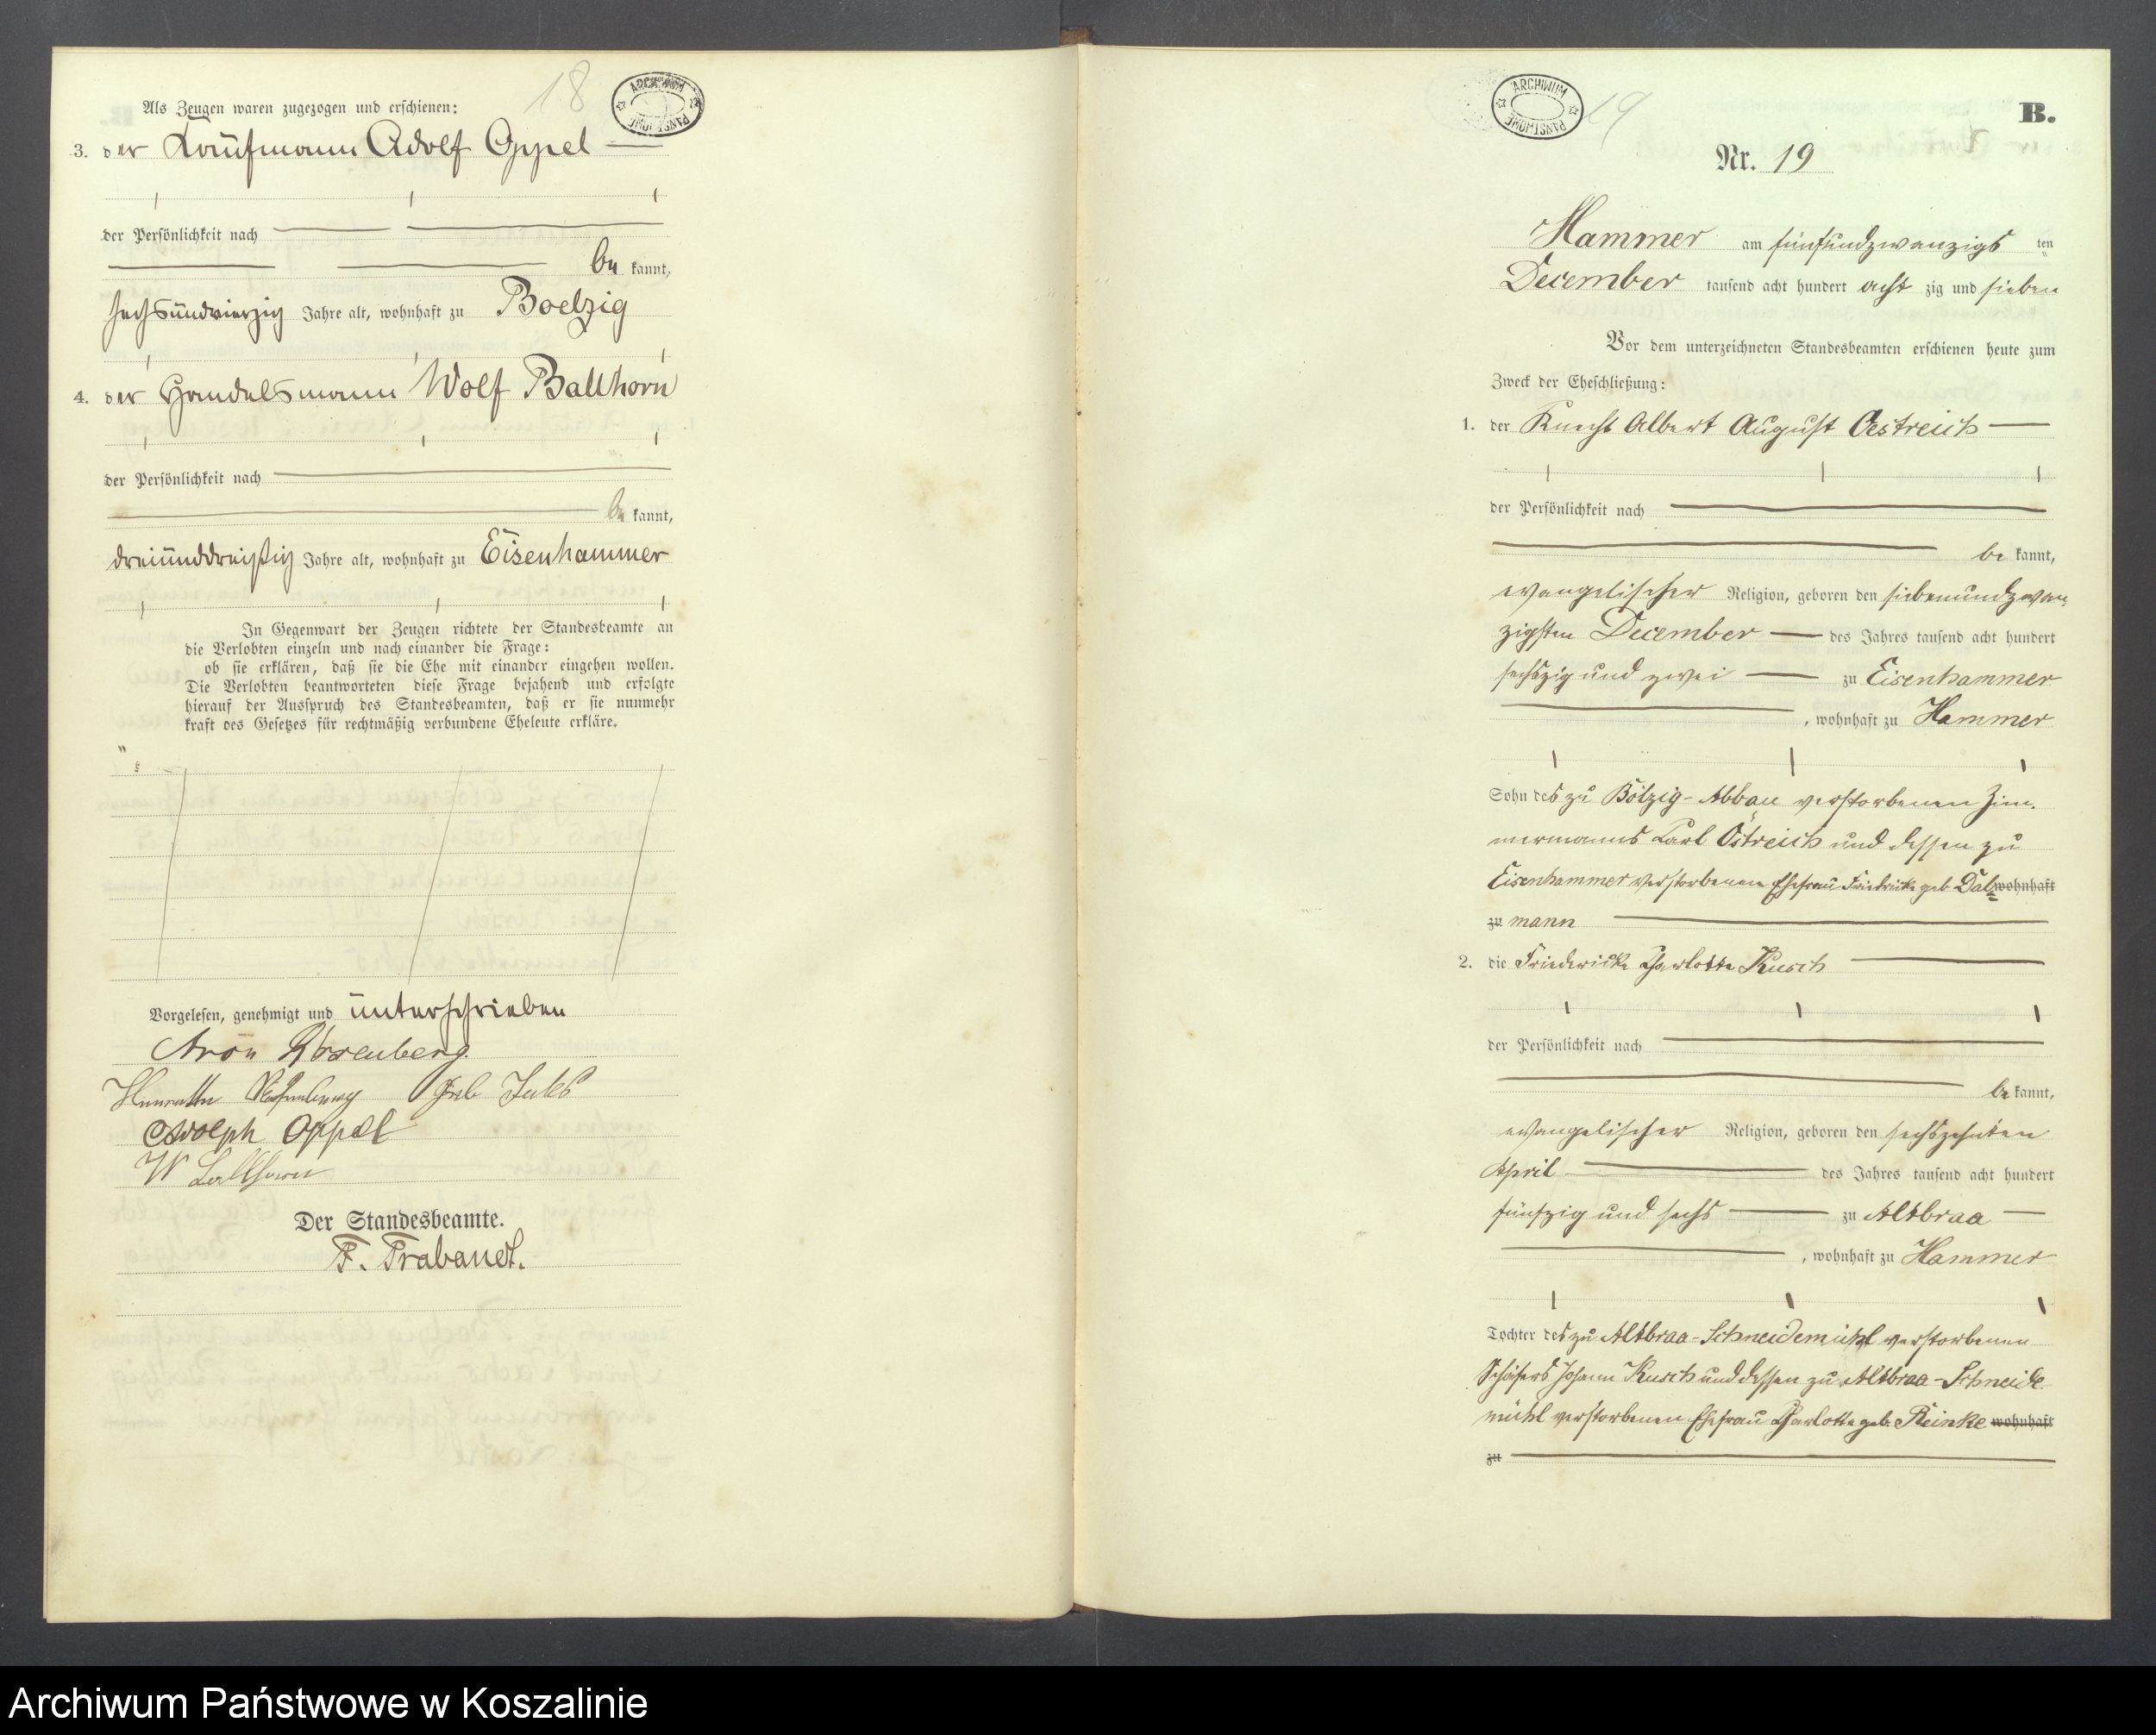 18
ARCHIWUM PAŃSTWOWE
Als Zeugen waren zugezogen und erschienen:
3. der Kaufmann Adolf Oppel
der Persönlichkeit nach
be kannt,
sechsundvierzig Jahre alt, wohnhaft zu Boelzig
4. der Handelsmann Wolf Ballhorn
der Persönlichkeit nach
be kannt,
dreiunddreißig Jahre alt, wohnhaft zu Eisenhammer
In Gegenwart der Zeugen richtete der Standesbeamte an
die Verlobten einzeln und nach einander die Frage:
ob sie erklären, daß sie die Ehe mit einander eingehen wollen.
Die Verlobten beantworteten diese Frage bejahend und erfolgte
hierauf der Ausspruch des Standesbeamten, daß er sie nunmehr
kraft des Gesetzes für rechtmäßig verbundene Eheleute erkläre.
Vorgelesen, genehmigt und unterschrieben
Aron Rosenberg.
Henriette Rosenberg geb
Adolph Oppel
W Ballhorn
Der Standesbeamte.
F. Trabandt.
ARCHIWUM PAŃSTWOWE
19
B.
Nr. 19
Hammer am fünfundzwanzigs ten
December tausend acht hundert acht zig und sieben
Vor dem unterzeichneten Standesbeamten erschienen heute zum
Zweck der Eheschließung:
1. der Knecht Albert August Oestreich
der Persönlichkeit nach
be kannt,
evangelischer Religion, geboren den siebenundzwan
zigsten December des Jahres tausend acht hundert
sechszig und zwei zu Eisenhammer
, wohnhaft zu Hammer
Sohn des zu Bölzig-Abbau verstorbenen Zim-
mermanns Carl Östreich und dessen zu
Eisenhammer verstorbenen Ehefrau Friedricke geb Dal= wohnhaft
zu mann
2. die Friedericke Charlotte Kusch
der Persönlichkeit nach
be kannt,
evangelischer Religion, geboren den sechszehnten
April des Jahres tausend acht hundert
fünfzig und sechs zu Altbraa
, wohnhaft zu Hammer
Tochter des zu Altbraa-Schneidemühl verstorbenen
Schäfers Johann Kusch und dessen zu Altbraa-Schneide
mühl verstorbenen Ehefrau Charlotte geb. Reinke wohnhaft
zu
Archiwum Państwowe w Koszalinie